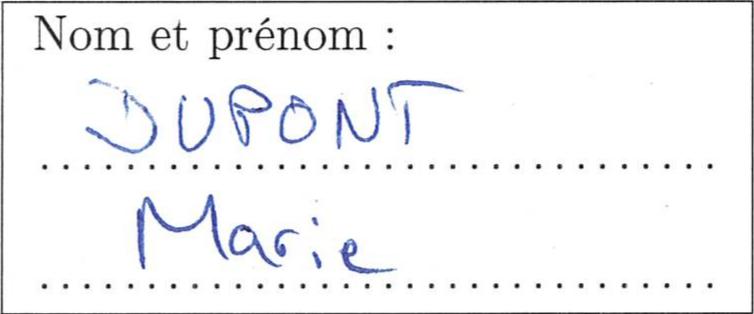 Nom et prénom :
DUPONT
Marie